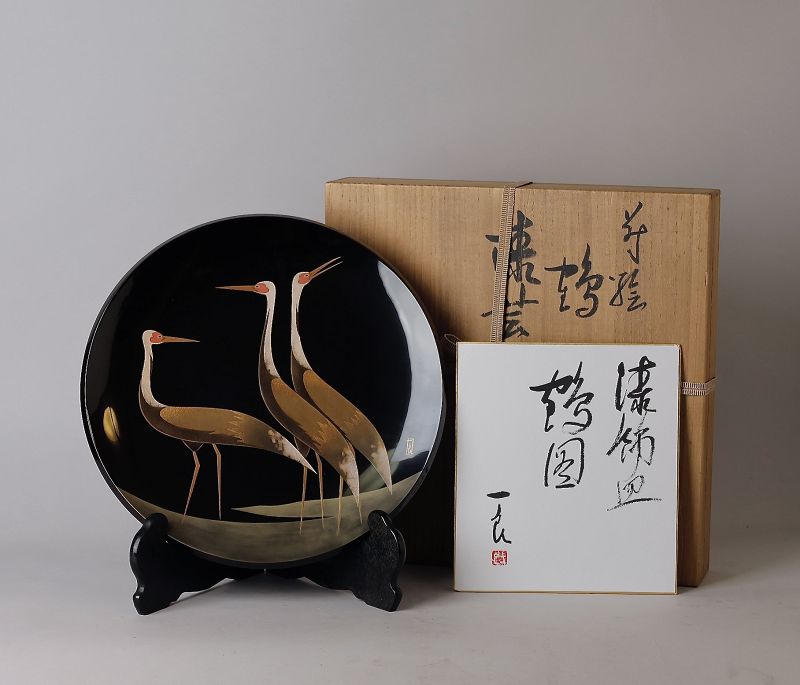 蒔絵
鶴
漆芸
漆飾皿
鶴図
一良